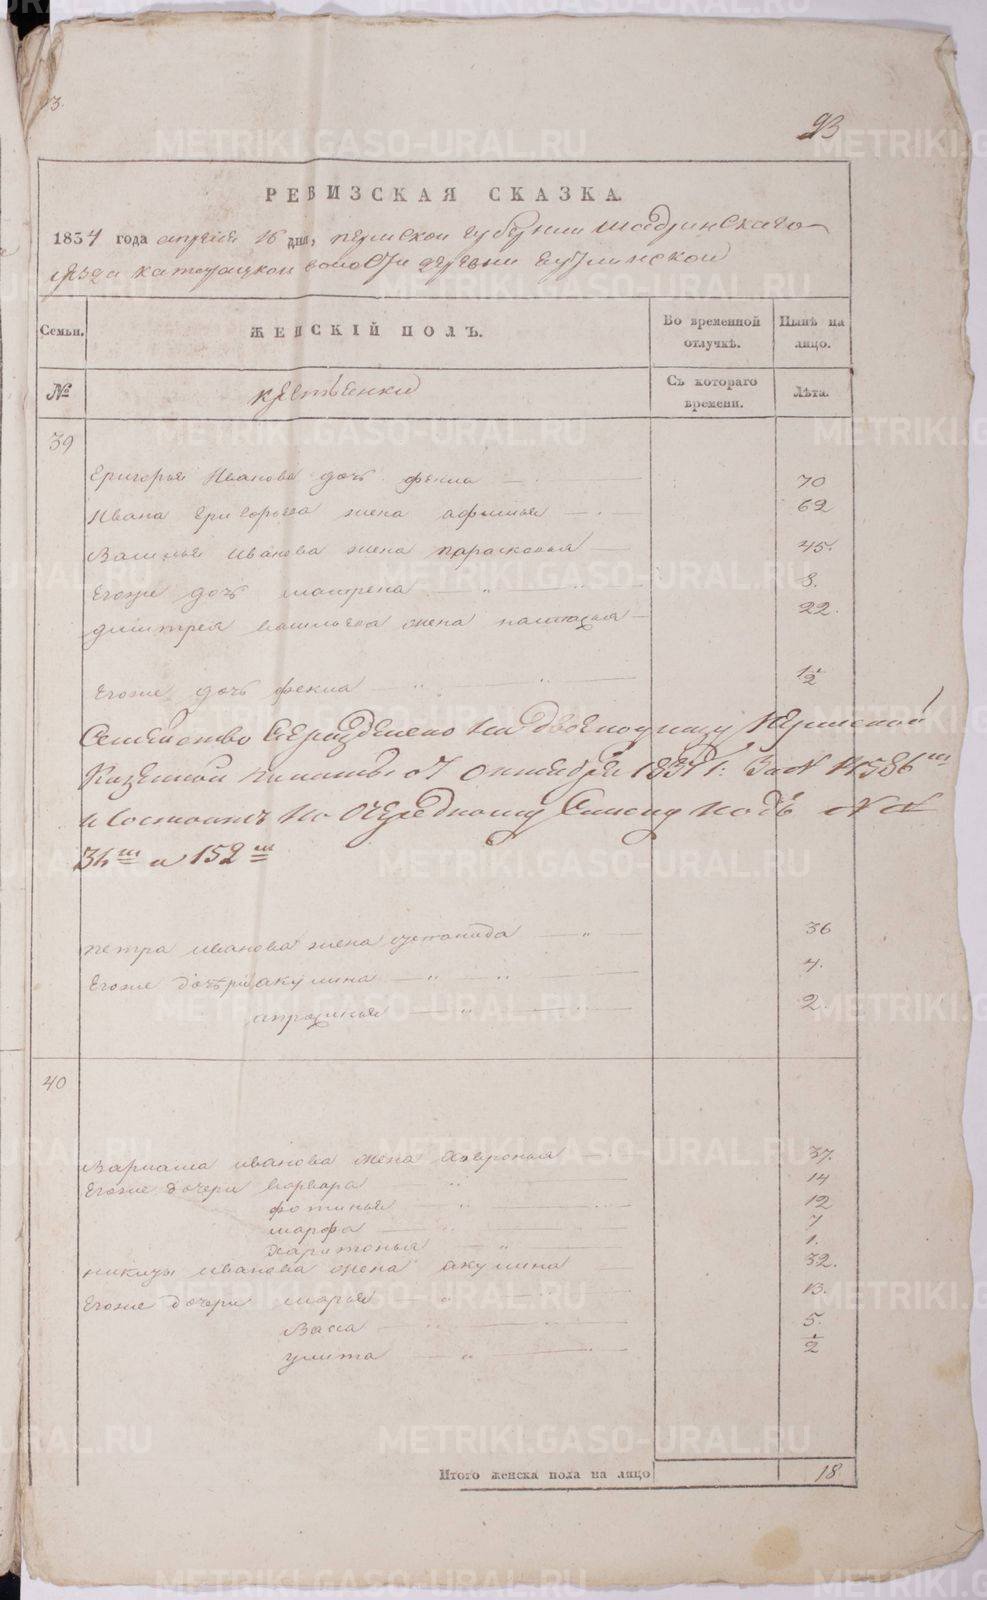 93
РЕВИЗСКАЯ СКАЗКА.
1834 года апреля 16 дня, пермской губернии шадринскаго
уезда катайской волости деревни
Семьи. ЖЕНСКІЙ ПОЛЪ. Во временной отлучкѣ. Нынѣ на лицо.
№ крестьянки Съ котораго времени. Лѣта.
39
Григорья Иванова дочь фекла 70
Ивана Григорьева жена афимья 62
Василья Иванова жена парасковья 45.
Егоже дочь матрена 8.
дмитрея васильева жена настасья 22.
Егоже дочь фекла 1/2
Семейство Сіе разделено На двое по указу Пермской
Казенной палаты от 7 октября 1837 г: За № 11586м
и Состоитъ По Очередному Списку подъ №№
34м и 152м
петра иванова жена степанида 36
Егоже дочери акулина 4.
апросинья 2.
40
Варлама иванова жена хавронья 37.
Егоже дочери варвара 14
фотинья 12
марфа 7
харитонья 1.
никиты иванова жена акулина 32.
Егоже дочери марья 13.
Васса 5.
улита 1/2
Итого женска пола на лицо 18
METRIKI.GASO-URAL.RU